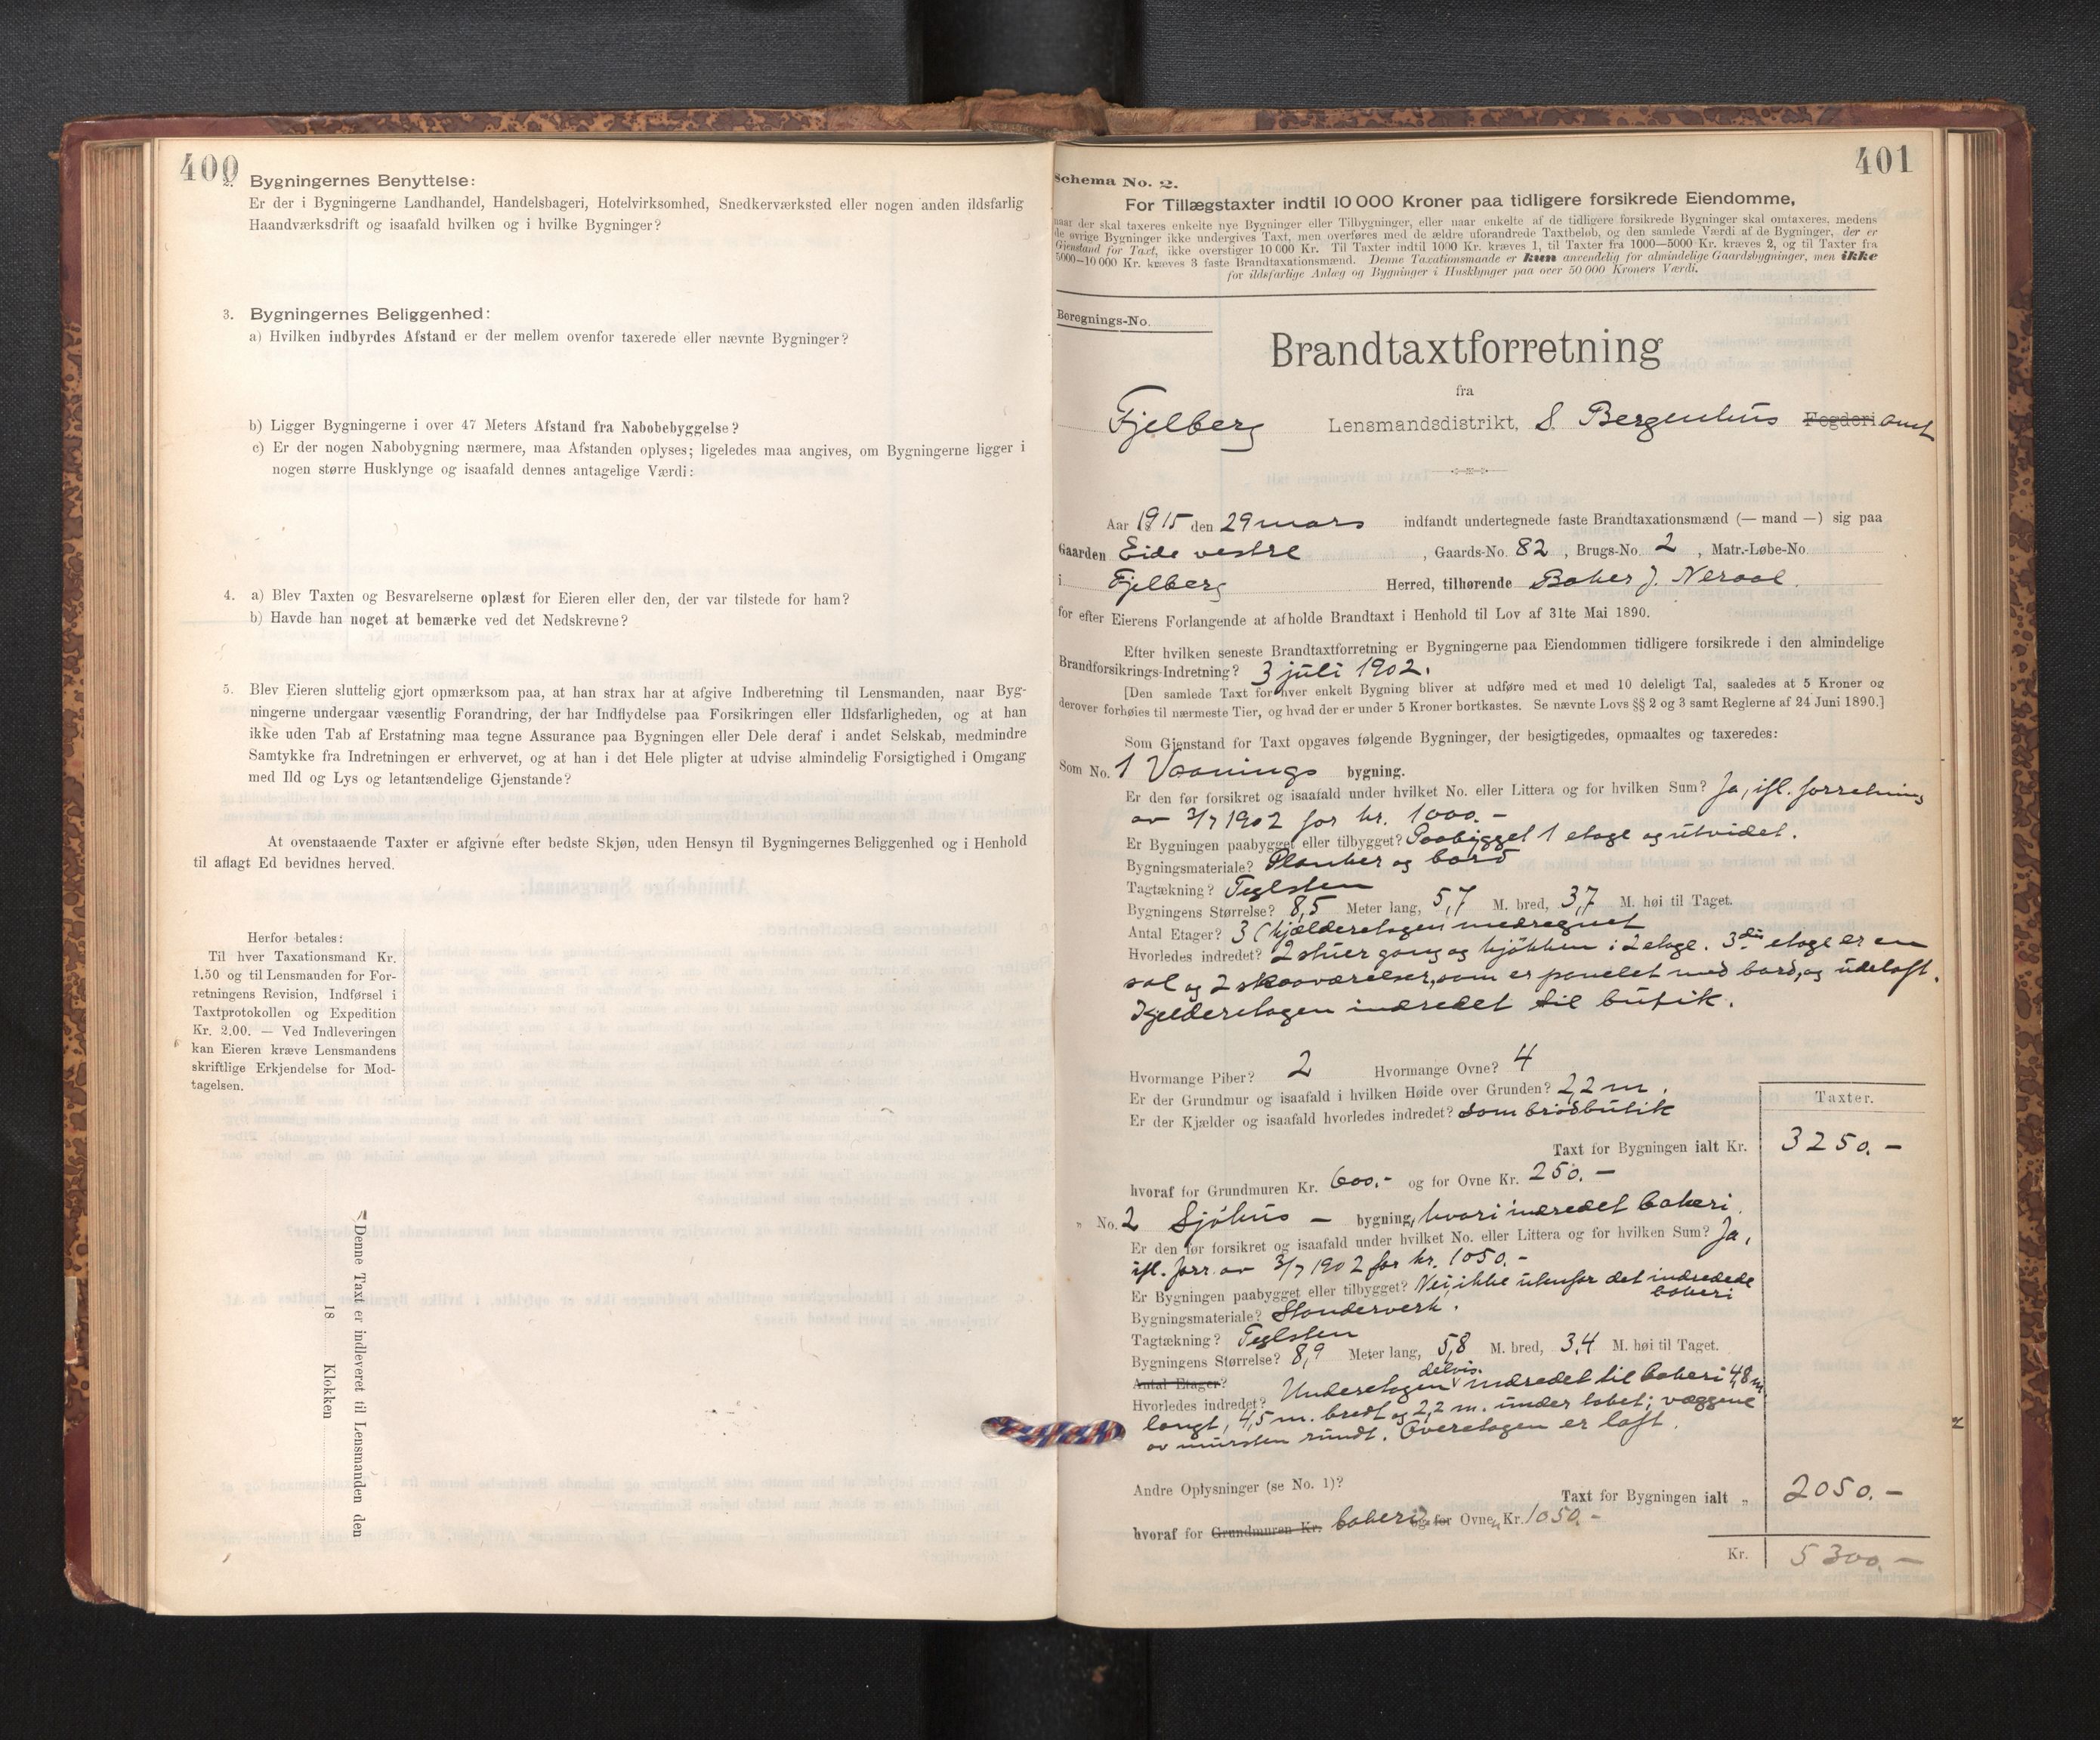 400
2. Bygningernes Benyttelse:
Er der i Bygningerne Landhandel, Handelsbageri, Hotelvirksomhed, Snedkerværksted eller nogen anden ildsfarlig
Haandværksdrift og isaafald hvilken og i hvilke Bygninger?
3. Bygningernes Beliggenhed:
a) Hvilken indbyrdes Afstand er der mellem ovenfor taxerede eller nævnte Bygninger?
b) Ligger Bygningerne i over 47 Meters Afstand fra Nabobebyggelse?
c) Er der nogen Nabobygning nærmere, maa Afstanden oplyses; ligeledes maa angives, om Bygningerne ligger i
nogen større Husklynge og isaafald dennes antagelige Værdi:
4. a) Blev Taxten og Besvarelserne oplæst for Eieren eller den, der var tilstede for ham?
b) Havde han noget at bemærke ved det Nedskrevne?
5. Blev Eieren sluttelig gjort opmærksom paa, at han strax har at afgive Indberetning til Lensmanden, naar Byg-
ningerne undergaar væsentlig Forandring, der har Indflydelse paa Forsikringen eller Ildsfarligheden, og at han
ikke uden Tab af Erstatning maa tegne Assurance paa Bygningen eller Dele deraf i andet Selskab, medmindre
Samtykke fra Indretningen er erhvervet, og at han i det Hele pligter at udvise almindelig Forsigtighed i Omgang
med Ild og Lys og letantændelige Gjenstande?
At ovenstaaende Taxter er afgivne efter bedste Skjøn, uden Hensyn til Bygningernes Beliggenhed og i Henhold
til aflagt Ed bevidnes herved.
Herfor betales:
Til hver Taxationsmand Kr.
1.50 og til Lensmanden for For-
retningens Revision, Indførsel i
Taxtprotokollen og Expedition
Kr. 2.00. — Ved Indleveringen
kan Eieren kræve Lensmandens
skriftlige Erkjendelse for Mod-
tagelsen.
Denne Taxt er indleveret til Lensmanden den
18 Klokken
401
Schema No. 2.
For Tillægstaxter indtil 10 000 Kroner paa tidligere forsikrede Eiendomme,
naar der skal taxeres enkelte nye Bygninger eller Tilbygninger, eller naar enkelte af de tidligere forsikrede Bygninger skal omtaxeres, medens
de øvrige Bygninger ikke undergives Taxt, men overføres med de ældre uforandrede Taxtbeløb, og den samlede Værdi af de Bygninger, der er
Gjenstand for Taxt, ikke overstiger 10 000 Kr. Til Taxter indtil 1000 Kr. kræves 1, til Taxter fra 1000—5000 Kr. kræves 2, og til Taxter fra
5000—10 000 Kr. kræves 3 faste Brandtaxationsmænd. Denne Taxationsmaade er kun anvendelig for almindelige Gaardsbygninger, men ikke
for ildsfarlige Anlæg og Bygninger i Husklynger paa over 50 000 Kroners Værdi.
Beregnings-No.
Brandtaxtforretning
fra
Fjelberg Lensmandsdistrikt, S. Bergenhus Fogderi amt
Aar 1915 den 29 mars indfandt undertegnede faste Brandtaxationsmænd (— mand —) sig paa
Gaarden Eide vestre, Gaards-No. 82, Brugs-No. 2, Matr.-Løbe-No.
i Fjelberg Herred, tilhørende Baker J. Neraal.
for efter Eierens Forlangende at afholde Brandtaxt i Henhold til Lov af 31te Mai 1890.
Efter hvilken seneste Brandtaxtforretning er Bygningerne paa Eiendommen tidligere forsikrede i den almindelige
Brandforsikrings-Indretning? 3 juli 1902.
[Den samlede Taxt for hver enkelt Bygning bliver at udføre med et med 10 deleligt Tal, saaledes at 5 Kroner og
derover forhøies til nærmeste Tier, og hvad der er under 5 Kroner bortkastes. Se nævnte Lovs §§ 2 og 3 samt Reglerne af 24 Juni 1890.]
Som Gjenstand for Taxt opgaves følgende Bygninger, der besigtigedes, opmaaltes og taxeredes:
Som No. 1 Vaanings bygning.
Er den før forsikret og isaafald under hvilket No. eller Littera og for hvilken Sum? Ja, ifl. forretning
av 3/7 1902 for kr. 1000.-
Er Bygningen paabygget eller tilbygget? Paabygget 1 etage og utvidet.
Bygningsmateriale? Planker og bord
Tagtækning? Teglsten
Bygningens Størrelse? 8,5 Meter lang, 5,7 M. bred, 3,7 M. høi til Taget.
Antal Etager? 3 (kjælderetagen medregnet
Hvorledes indredet? 2 stuer gang og kjøkken i 2 etage. 3die etage er en
sal og 2 soveværelser, som er panelet med bord, og uteloft.
Kjelderetagen indredet til butik.
Hvormange Piber? 2 Hvormange Ovne? 4
Er der Grundmur og isaafald i hvilken Høide over Grunden? 2,2 m.
Er der Kjælder og isaafald hvorledes indredet? som brødbutik
Taxter.
Taxt for Bygningen ialt Kr. 3250.-
hvoraf for Grundmuren Kr. 600.- og for Ovne Kr. 250.-
" No. 2 Sjøhus - bygning, hvori indredet bakeri.
Er den før forsikret og isaafald under hvilket No. eller Littera og for hvilken Sum? Ja,
ifl. forr. av 3/7 1902 for kr. 1050.-
Er Bygningen paabygget eller tilbygget? Nei, ikke utenfor det indredede
bakeri
Bygningsmateriale? Standerverk.
Tagtækning? Teglsten
Bygningens Størrelse? 8,9 Meter lang, 5,8 M. bred, 3,4 M. høi til Taget.
Antal Etager?
Hvorledes indredet? Underetagen delvis indredet til bakeri 4,8 m
langt, 4,5 m. bredt og 2,2 m. under taket; væggene
av mursten rundt. Overetagen er loft.
Andre Oplysninger (se No. 1)?
Taxt for Bygningen ialt " 2050.-
hvoraf for Grundmuren Kr. bakeri og for Ovne Kr. 1050.-
Kr. 5300.-